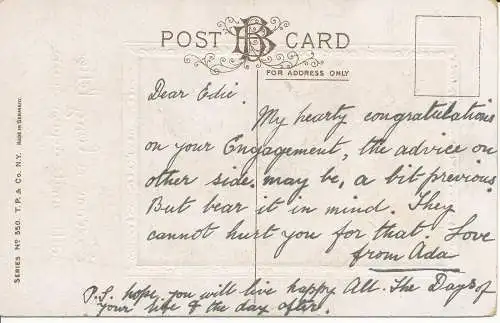 POST CARD
FOR ADDRESS ONLY
Dear Edie.
My hearty congratulations
on your Engagement, the advice on
other side. may be, a bit previous.
But bear it in mind. They
cannot hurt you for that. Love
from Ada
P.S. hope you will live happy All. The Days of
your life & the day after.
SERIES Nº 550. T. P. & CO. N.Y. MADE IN GERMANY.